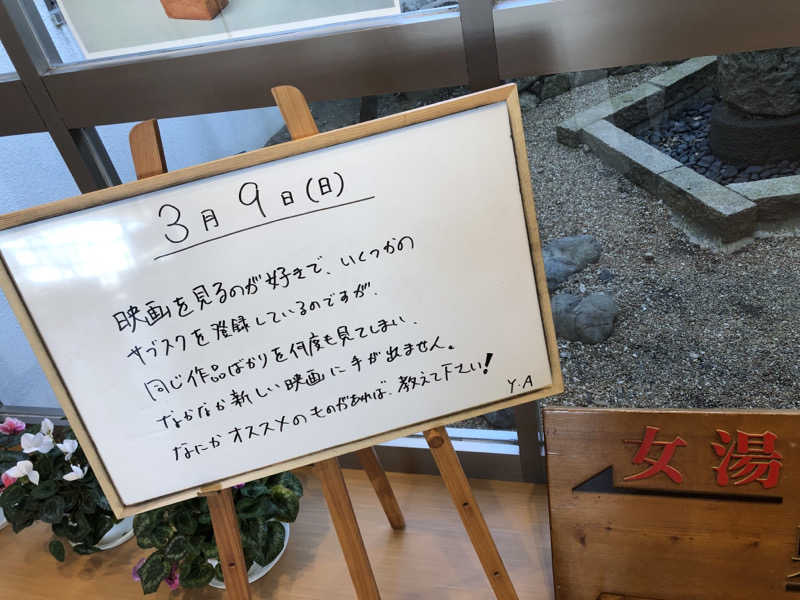 3月9日(日)
映画を見るのが好きで、いくつかの
サブスクを登録しているのですが、
同じ作品ばかりを何度も見てしまい、
なかなか新しい映画に手が出ません。
なにかオススメのものがあれば、教えて下さい!
Y.A
女湯